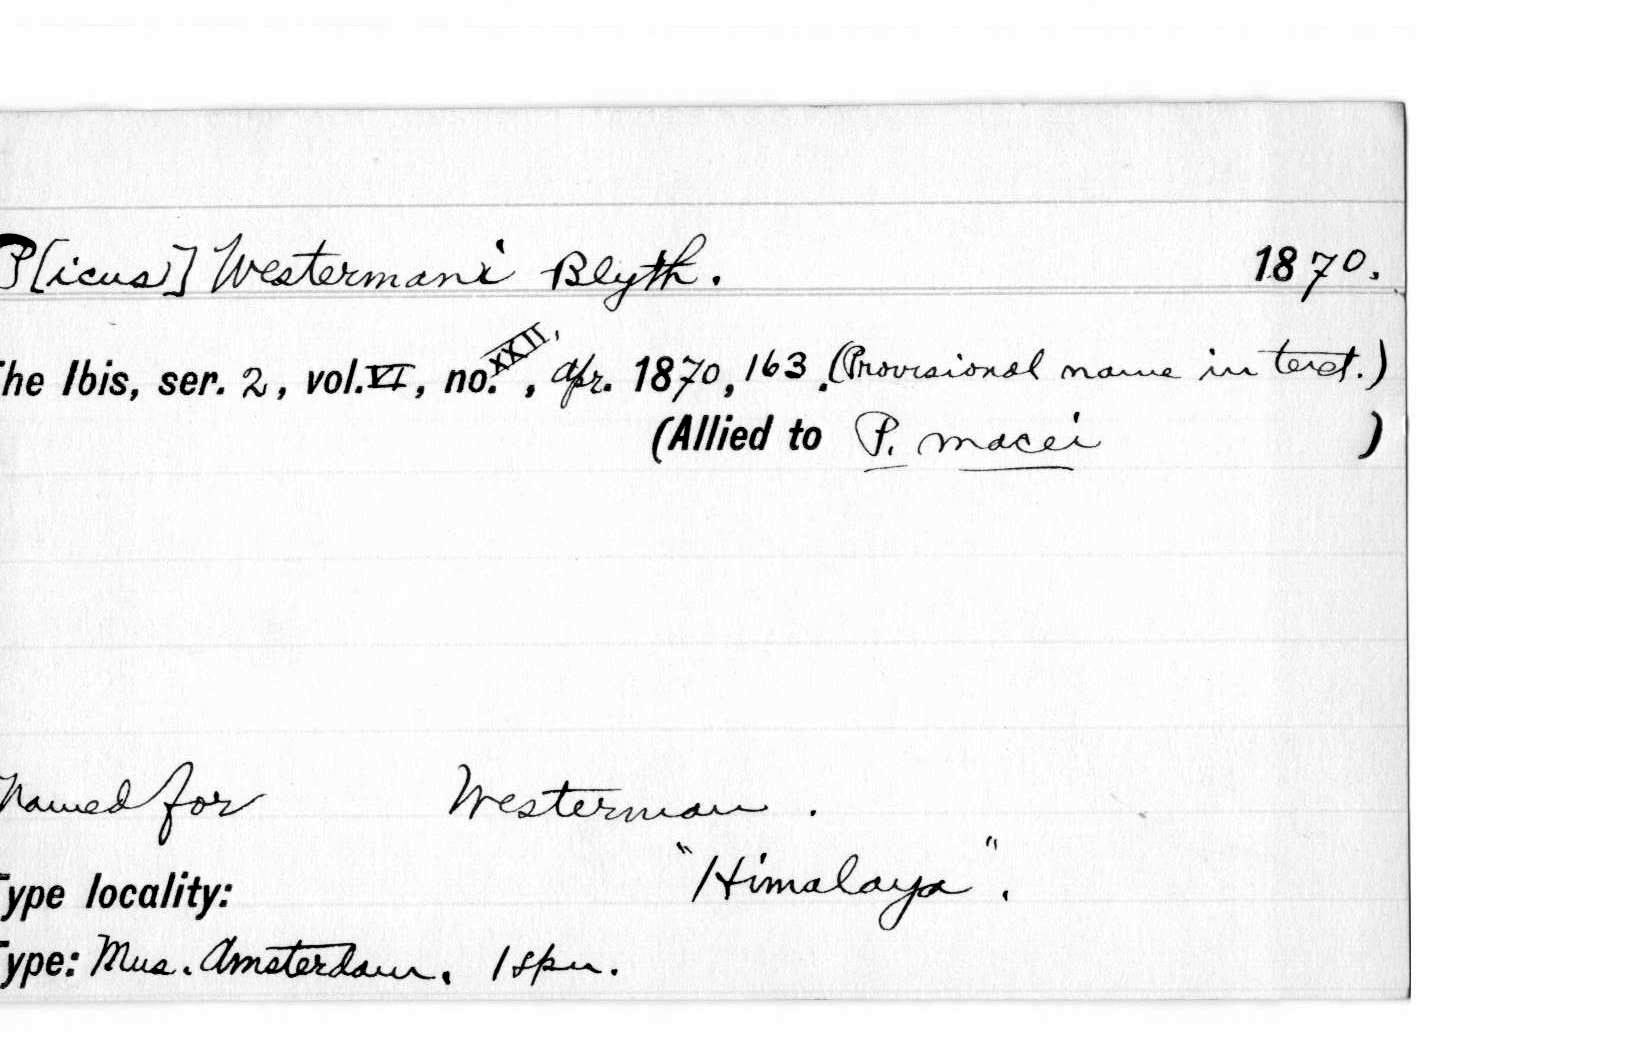 P[icus] Westermani Blyth. 1870.
The Ibis, ser. 2, vol. VI, no. XXII, Apr. 1870, 163. (Provisional name in text.)
(Allied to P. macei )
Named for Westerman.
Type locality: "Himalaya".
Type: Mus. Amsterdam. 1 spn.